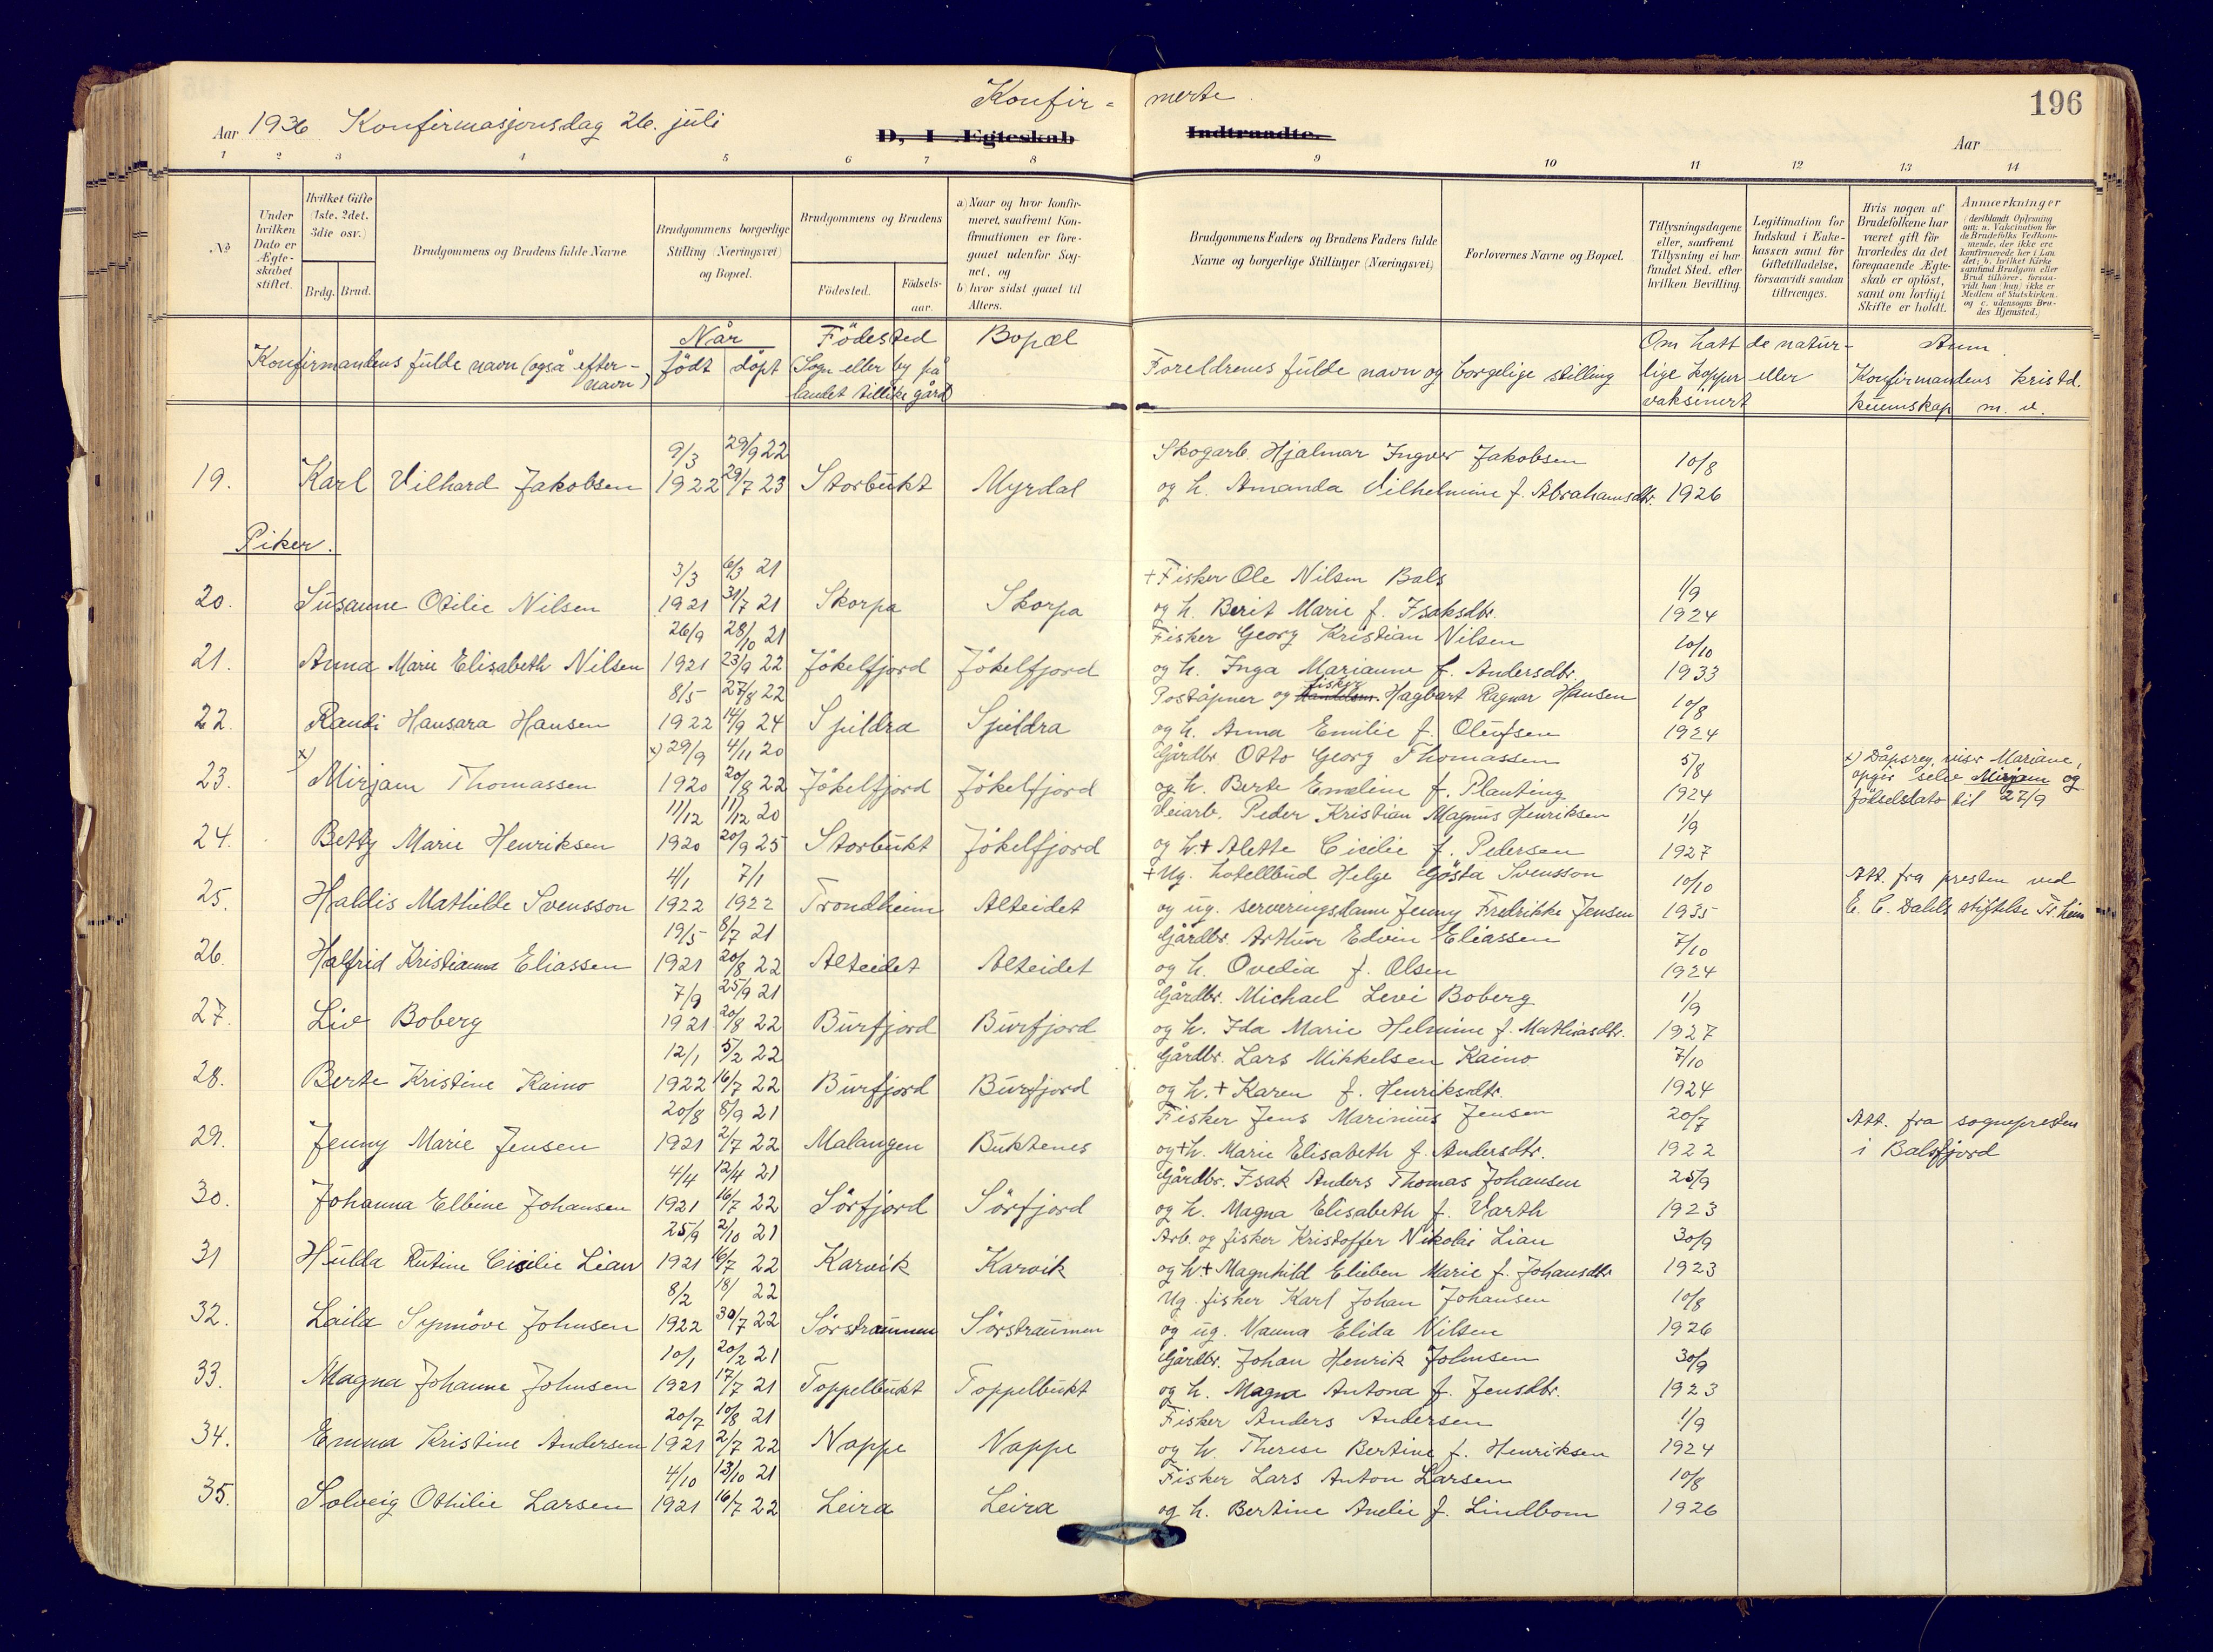 Konfir = merte.
196
Aar 1936 Konfirmasjonsdag 26. juli
D, I Ægteskab Indtraadte.
Aar
1 2 3 4 5 6 7 8 9 10 11 12 13 14
No
Under hvilken Dato er Ægte-skabet stiftet.
Hvilket Gifte (1ste, 2det, 3die osv.)
Brdg. Brud.
Brudgommens og Brudens fulde Navne
Brudgommens borgerlige Stilling (Næringsvei) og Bopæl.
Brudgommens og Brudens
Fødested. Fødsels-aar.
a) Naar og hvor konfir-meret, saafremt Kon-firmationen er fore-gaaet udenfor Sog-net, og
b) hvor sidst gaaet til Alters.
Brudgommens Faders og Brudens Faders fulde Navne og borgerlige Stillinger (Næringsvei)
Forlovernes Navne og Bopæl.
Tillysningsdagene eller, saafremt Tillysning ei har fundet Sted, efter hvilken Bevilling.
Legitimation for Indskud i Enke-kassen samt for Giftetilladelse, forsaavidt saadan tiltrænges.
Hvis nogen af Brudefolkene har været gift før hvorledes da det foregaaende Ægte-skab er opløst, samt om lovligt Skifte er holdt.
Anmærkninger (deriblandt Oplysning om: a. Vakcination for de Brudefolks Vedkom-mende, der ikke ere konfirmerede her i Lan-det; b. hvilket Kirke-samfund Brudgom eller Brud tilhører, forsaa-vidt han (hun) ikke er Medlem af Statskirken, og c. udensogns Bru-des Hjemsted.)
Konfirmandens fulde navn (også efter-navn)
Når
født døpt
Fødested
(Sogn eller by på landet tillike gård)
Bopæl
Foreldrenes fulde navn og borgelige stilling
Om hatt de natur-lige kopper eller vaksinert
Anm.
Konfirmandens kristd. kunnskap m. v.
9/3 29/9 22 Skogarb. Hjalmar Ingver Jakobsen 10/8
19. Karl Vilhard Jakobsen 1922 29/7 23 Storbukt Myrdal og h. Amanda Vilhelmine f. Abrahamsdtr. 1926
Piker.
3/3 6/3 21 + Fisker Ole Nilsen Bals 1/9
20. Susanne Otilie Nilsen 1921 31/7 21 Skorpa Skorpa og h. Berit Marie f. Isaksdtr. 1924
26/9 28/10 21 Fisker Georg Kristian Nilsen 10/10
21. Anna Marie Elisabeth Nilsen 1921 23/9 22 Jökelfjord Jökelfjord og h. Inga Marianne f. Andersdtr. 1933
8/5 27/8 22 Poståpner og Handelsm. fisker Hagbart Ragnar Hansen 10/8
22. Randi Hansara Hansen 1922 14/9 24 Spildra Spildra og h. Anna Emilie f. Olufsen 1924
x) x) 29/9 4/11 20 Gårdbr. Otto Georg Thomassen 5/8 x) Dåpsreg. viser Mariane,
23. Mirjam Thomassen 1920 20/8 22 Jökelfjord Jökelfjord og h. Berte Emeline f. Planting 1924 opgir selv Mirjam og
fødselsdato til 27/9
11/12 11/12 20 Veiarb. Peder Kristian Magnus Henriksen 1/9
24. Betty Marie Henriksen 1920 20/9 25 Storbukt Jökelfjord og h. + Alette Cicilie f. Pedersen 1927
4/1 7/1 + Ug. hotellbud Helge Gösta Svensson 10/10 Att. fra presten ved
25. Haldis Mathilde Svensson 1922 1922 Trondheim Alteidet og ug. serveringsdame Jenny Fredrikke Jensen 1935 E. C. Dahls stiftelse Tr.heim
19/5 8/7 21 Gårdbr. Arthur Edvin Eliassen 7/10
26. Halfrid Kristianna Eliassen 1921 20/8 22 Alteidet Alteidet og h. Ovedia f. Olsen 1924
7/9 25/9 21 Gårdbr. Michael Levi Boberg 1/9
27. Liv Boberg 1921 20/8 22 Burfjord Burfjord og h. Ida Marie Helmine f. Mathiasdtr. 1927
12/1 5/2 22 Gårdbr. Lars Mikkelsen Kaino 7/10
28. Berte Kristine Kaino 1922 16/7 22 Burfjord Burfjord og h. + Karen f. Henriksdtr. 1924
20/8 8/9 21 Fisker Jens Marinius Jensen 20/7 Att. fra sognepresten
29. Jenny Marie Jensen 1921 2/7 22 Malangen Buktenes og + h. Marie Elisabeth f. Andersdtr. 1922 i Balsfjord
4/4 12/4 21 Gårdbr. Isak Anders Thomas Johansen 25/9
30. Johanna Elbine Johansen 1921 16/7 22 Sörfjord Sörfjord og h. Magna Elisabeth f. Varth 1923
25/9 2/10 21 Arb. og fisker Kristoffer Nikolai Lian 30/9
31 Hulda Rutine Cicilie Lian 1921 16/7 22 Karvik Karvik og h. + Magnhild Elieben Marie f. Johansdtr 1923
8/2 18/ 22 Ug. fisker Karl Johan Johansen 10/8
32. Laila Synnöve Johnsen 1922 30/7 22 Sörstraumen Sörstraumen og ug. Nanna Elida Nilsen 1926
10/1 20/2 21 Gårdbr. Johan Henrik Johnsen 30/9
33. Magna Johanne Johnsen 1921 17/7 21 Toppelbukt Toppelbukt og h. Magna Antona f. Jensdtr. 1923
20/7 10/8 21 Fisker Anders Andersen 1/9
34. Emma Kristine Andersen 1921 2/7 22 Noppe Noppe og h. Therese Bertine f. Henriksen 1924
4/10 13/10 21 Fisker Lars Anton Larsen 10/8
35. Solveig Othilie Larsen 1921 16/7 22 Leira Leira og h. Bertine Amelie f. Lindbom 1926